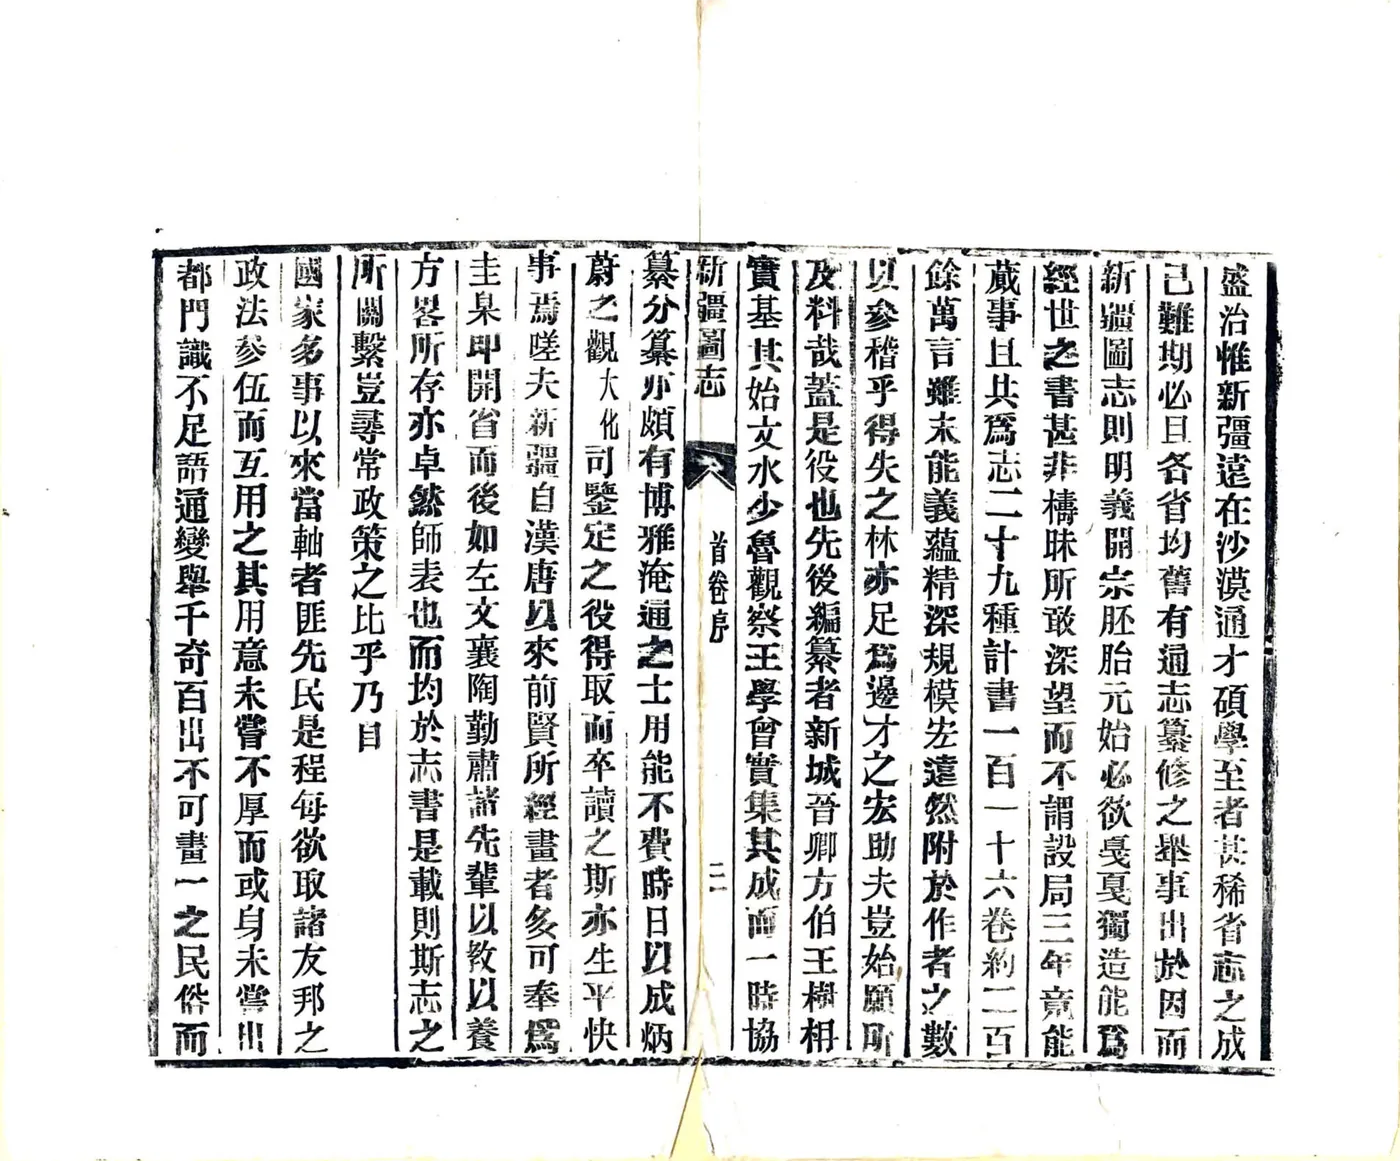 盛治惟新疆遠在沙漠通才碩學至者甚稀省志之成
已難期必且各省均舊有通志纂修之舉事出於因而
新疆圖志則明義開宗胚胎元始必欲戛戛獨造能爲
經世之書甚非檮昧所敢深望而不謂設局三年竟能
蕆事且共爲志二十九種計書一百一十六卷約二百
餘萬言雖未能義蘊精深規模宏遠然附於作者之數
以參稽乎得失之林亦足爲邊才之宏助夫豈始願所
及料哉蓋是役也先後編纂者新城晉卿方伯王樹枏
實基其始文水少魯觀察王學曾實集其成而一時協
新疆圖志 首卷序 二
纂分纂亦頗有博雅淹通之士用能不費時日以成炳
蔚之觀大化司鑒定之役得取而卒讀之斯亦生平快
事焉嗟夫新疆自漢唐以來前賢所經畫者多可奉爲
圭臬即開省而後如左文襄陶勤肅諸先輩以教以養
方畧所存亦卓然師表也而均於志書是載則斯志之
所關繫豈尋常政策之比乎乃自
國家多事以來當軸者匪先民是程每欲取諸友邦之
政法參伍而互用之其用意未嘗不厚而或身未嘗出
都門識不足語通變舉千奇百出不可畫一之民俗而